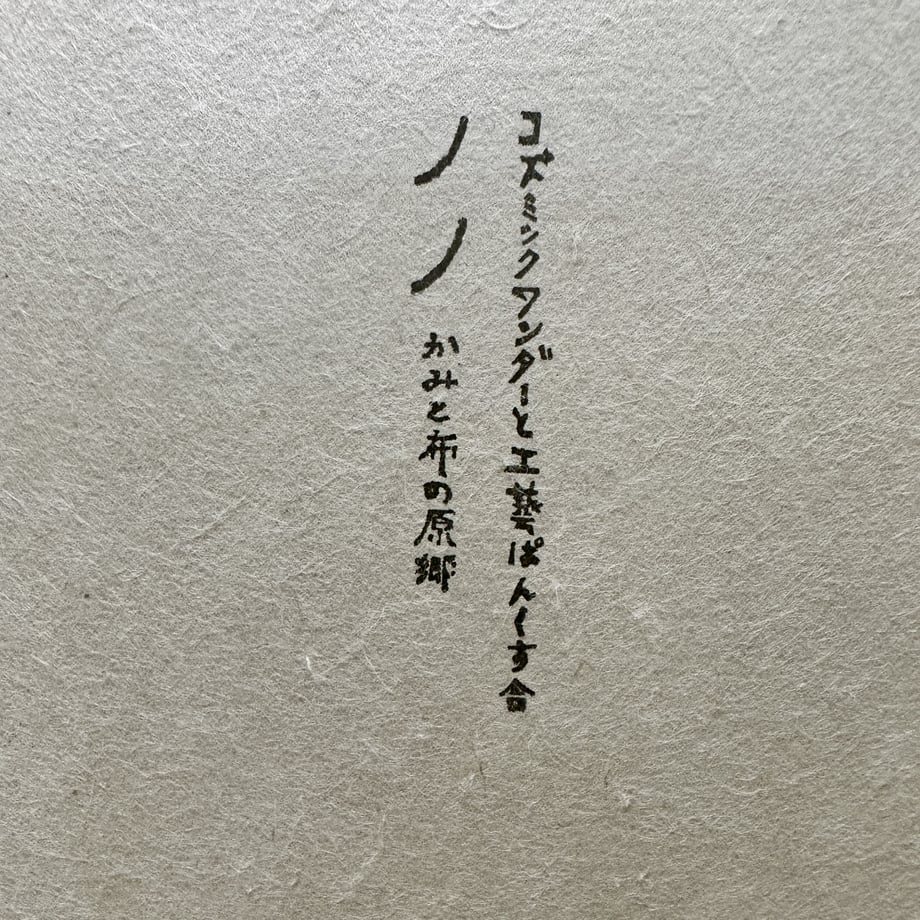 コズミックワンダーと工藝ぱんくす舎
ノノ かみと布の原郷